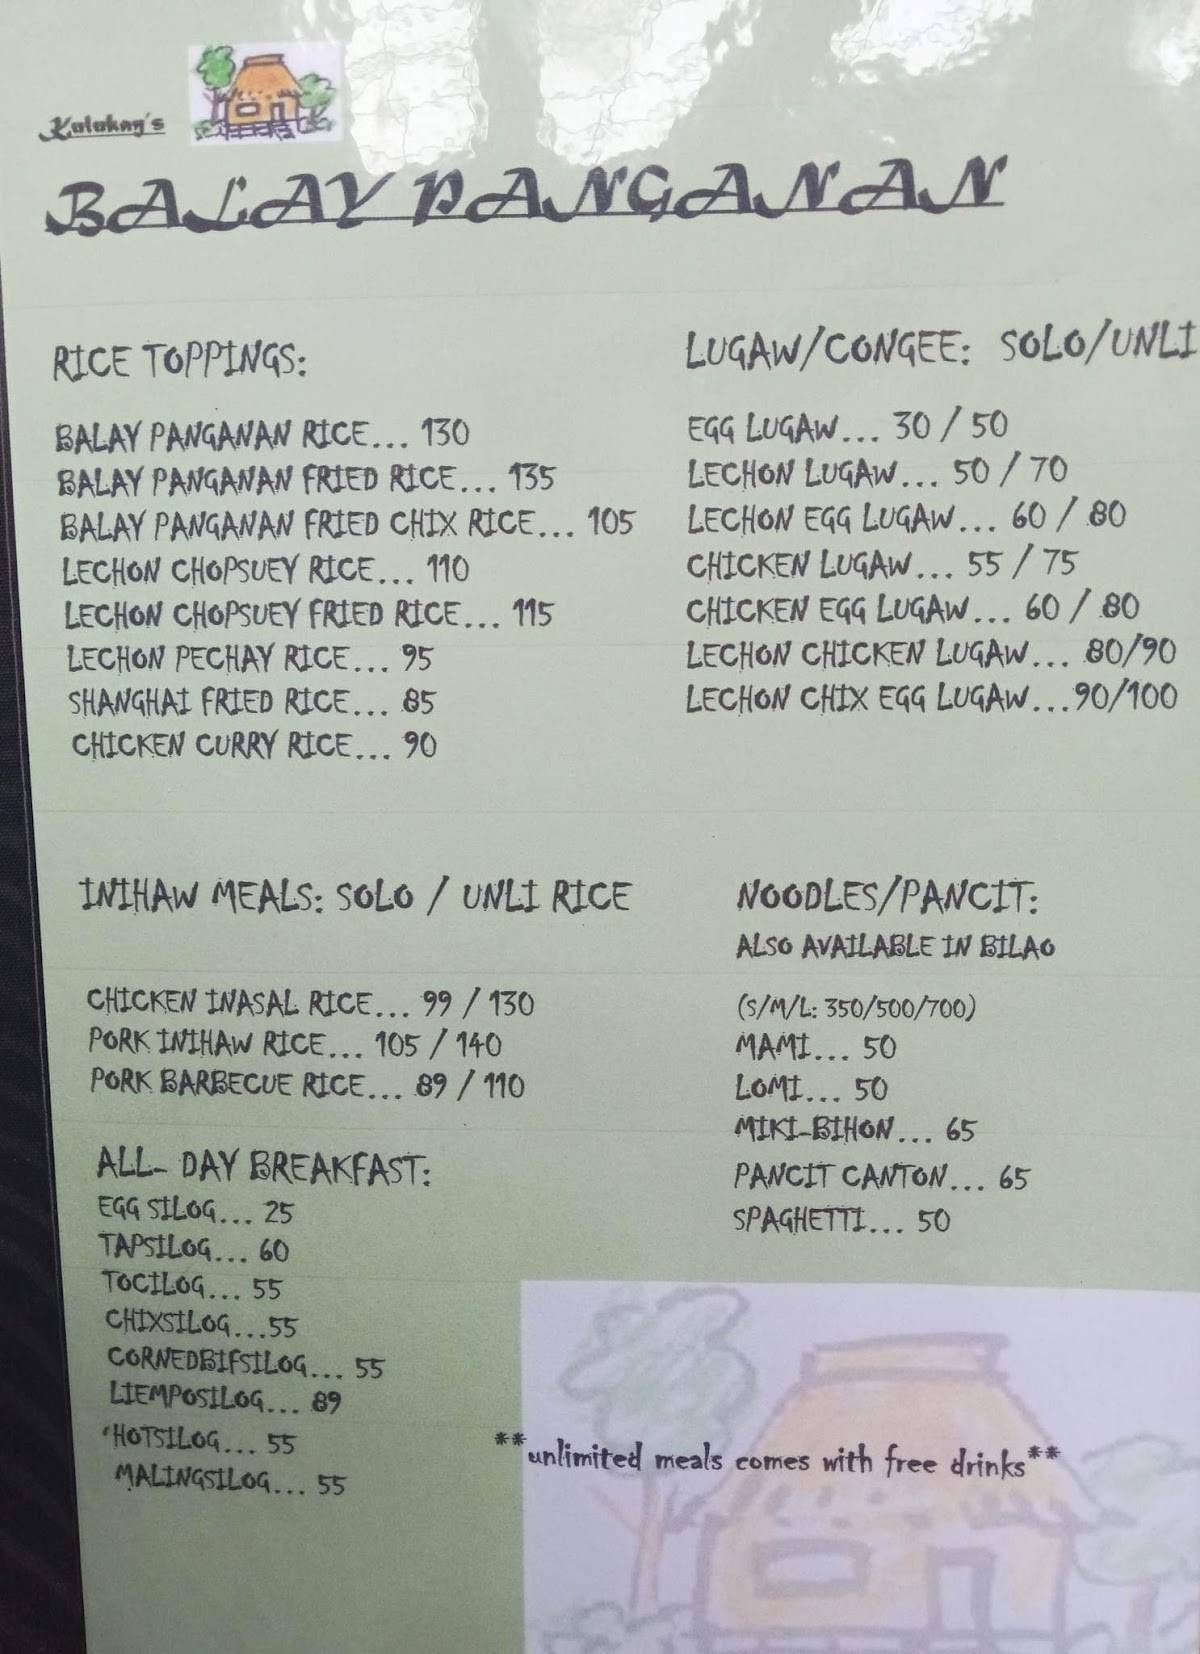 Kulokay's
BALAY PANGANAN
RICE TOPPINGS:
BALAY PANGANAN RICE... 130
BALAY PANGANAN FRIED RICE... 135
BALAY PANGANAN FRIED CHIX RICE... 105
LECHON CHOPSUEY RICE... 110
LECHON CHOPSUEY FRIED RICE... 115
LECHON PECHAY RICE... 95
SHANGHAI FRIED RICE... 85
CHICKEN CURRY RICE... 90
LUGAW/CONGEE: SOLO/UNLI
EGG LUGAW... 30 / 50
LECHON LUGAW... 50 / 70
LECHON EGG LUGAW... 60 / 80
CHICKEN LUGAW... 55 / 75
CHICKEN EGG LUGAW... 60 / 80
LECHON CHICKEN LUGAW... 80/90
LECHON CHIX EGG LUGAW...90/100
INIHAW MEALS: SOLO / UNLI RICE
CHICKEN INASAL RICE... 99 / 130
PORK INIHAW RICE... 105 / 140
PORK BARBECUE RICE... 89 / 110
ALL- DAY BREAKFAST:
EGG SILOG... 25
TAPSILOG... 60
TOCILOG... 55
CHIXSILOG...55
CORNEDBIFSILOG... 55
LIEMPOSILOG... 89
'HOTSILOG... 55
MALINGSILOG... 55
NOODLES/PANCIT:
ALSO AVAILABLE IN BILAO
(S/M/L: 350/500/700)
MAMI... 50
LOMI... 50
MIKI-BIHON... 65
PANCIT CANTON... 65
SPAGHETTI... 50
**unlimited meals comes with free drinks**